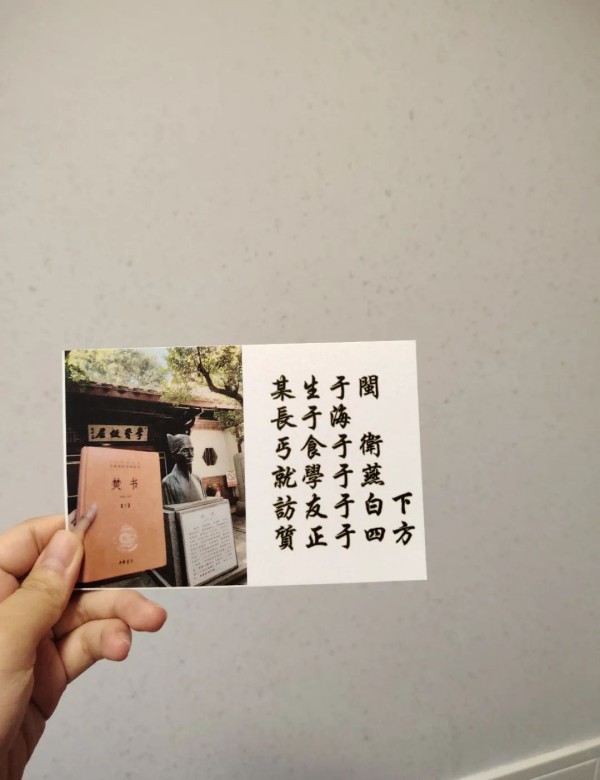 某生于閩
長于海
丐食于衛
就學于燕
訪友于白下
質正于四方
李贄故居
焚书